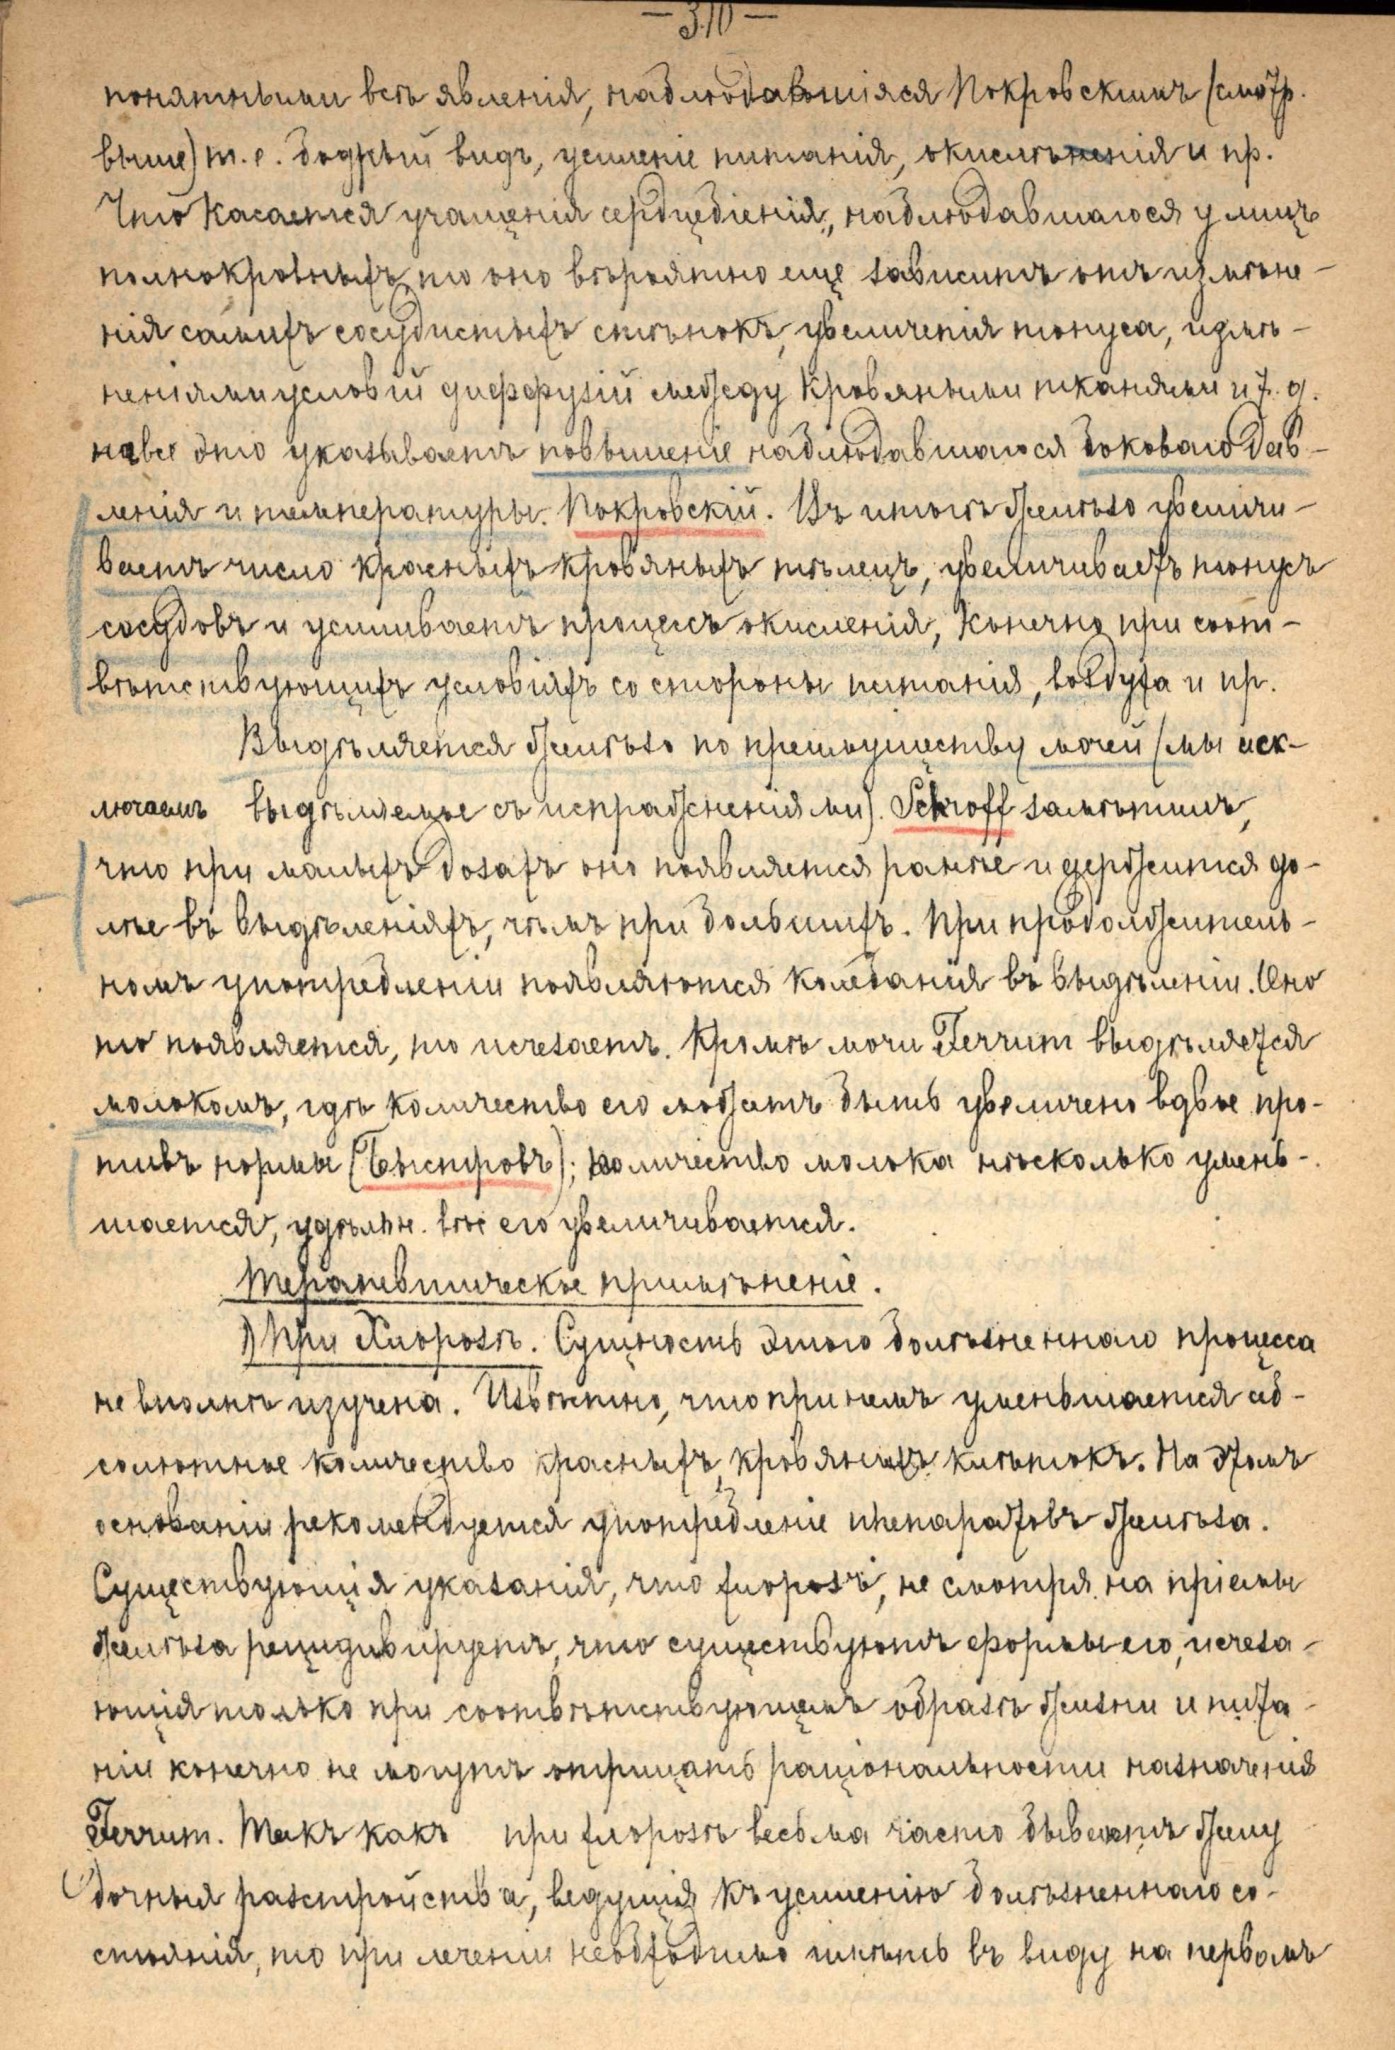 — 310 —
понятными всѣ явленія, наблюдавшіяся Покровскимъ (смотр.
выше) т. е. бодрый видъ, усиленіе питанія, окисленія и пр.
Что касается учащенія сердцебіенія, наблюдавшагося у лицъ
полнокровныхъ, то оно вѣроятно еще зависитъ отъ измѣне-
нія самихъ сосудистыхъ стѣнокъ, увеличенія тонуса, измѣ-
неніями условій диффузій между кровяными тканями и т. д.
на все это указываетъ повышеніе наблюдавшагося боковаго дав-
ленія и температуры. Покровскій. Въ итогѣ желѣзо увеличи-
ваетъ число красныхъ кровяныхъ тѣлецъ, увеличиваетъ тонусъ
сосудовъ и усиливаетъ процессъ окисленія, конечно при соот-
вѣтствующихъ условіяхъ со стороны питанія, воздуха и пр.
Выдѣляется желѣзо по преимуществу мочей (мы иск-
лючаемъ выдѣляемое съ испражненіями). Schroff замѣтилъ,
что при малыхъ дозахъ оно появляется ранѣе и держится до-
лѣе въ выдѣленіяхъ, чѣмъ при большихъ. При продолжитель-
номъ употребленіи появляются колебанія въ выдѣленіи. Оно
то появляется, то исчезаетъ. Кромѣ мочи Ferrum выдѣляется
молокомъ, гдѣ количество его можетъ быть увеличено вдвое про-
тивъ нормы (Быстровъ); количество молока нѣсколько умень-
шается, удѣльн. вѣс его увеличивается.
Терапевтическое примѣненіе.
1) При Хлорозѣ. Сущность этого болѣзненнаго процесса
не вполнѣ изучена. Извѣстно, что при немъ уменьшается аб-
солютное количество красныхъ кровяныхъ клѣтокъ. На этомъ
основаніи рекомендуется употребленіе препаратовъ желѣза.
Существующія указанія, что хлорозъ, не смотря на пріемы
желѣза рецидивируетъ, что существуютъ формы его, исчеза-
ющія только при соотвѣтствующемъ образѣ жизни и пита-
ніи конечно не могутъ отрицать раціональности назначенія
Ferrum. Такъ какъ при хлорозѣ весьма часто бываютъ желу
дочныя разстройства, ведущія къ усиленію болѣзненнаго со-
стоянія, то при леченіи необходимо имѣть въ виду на первомъ